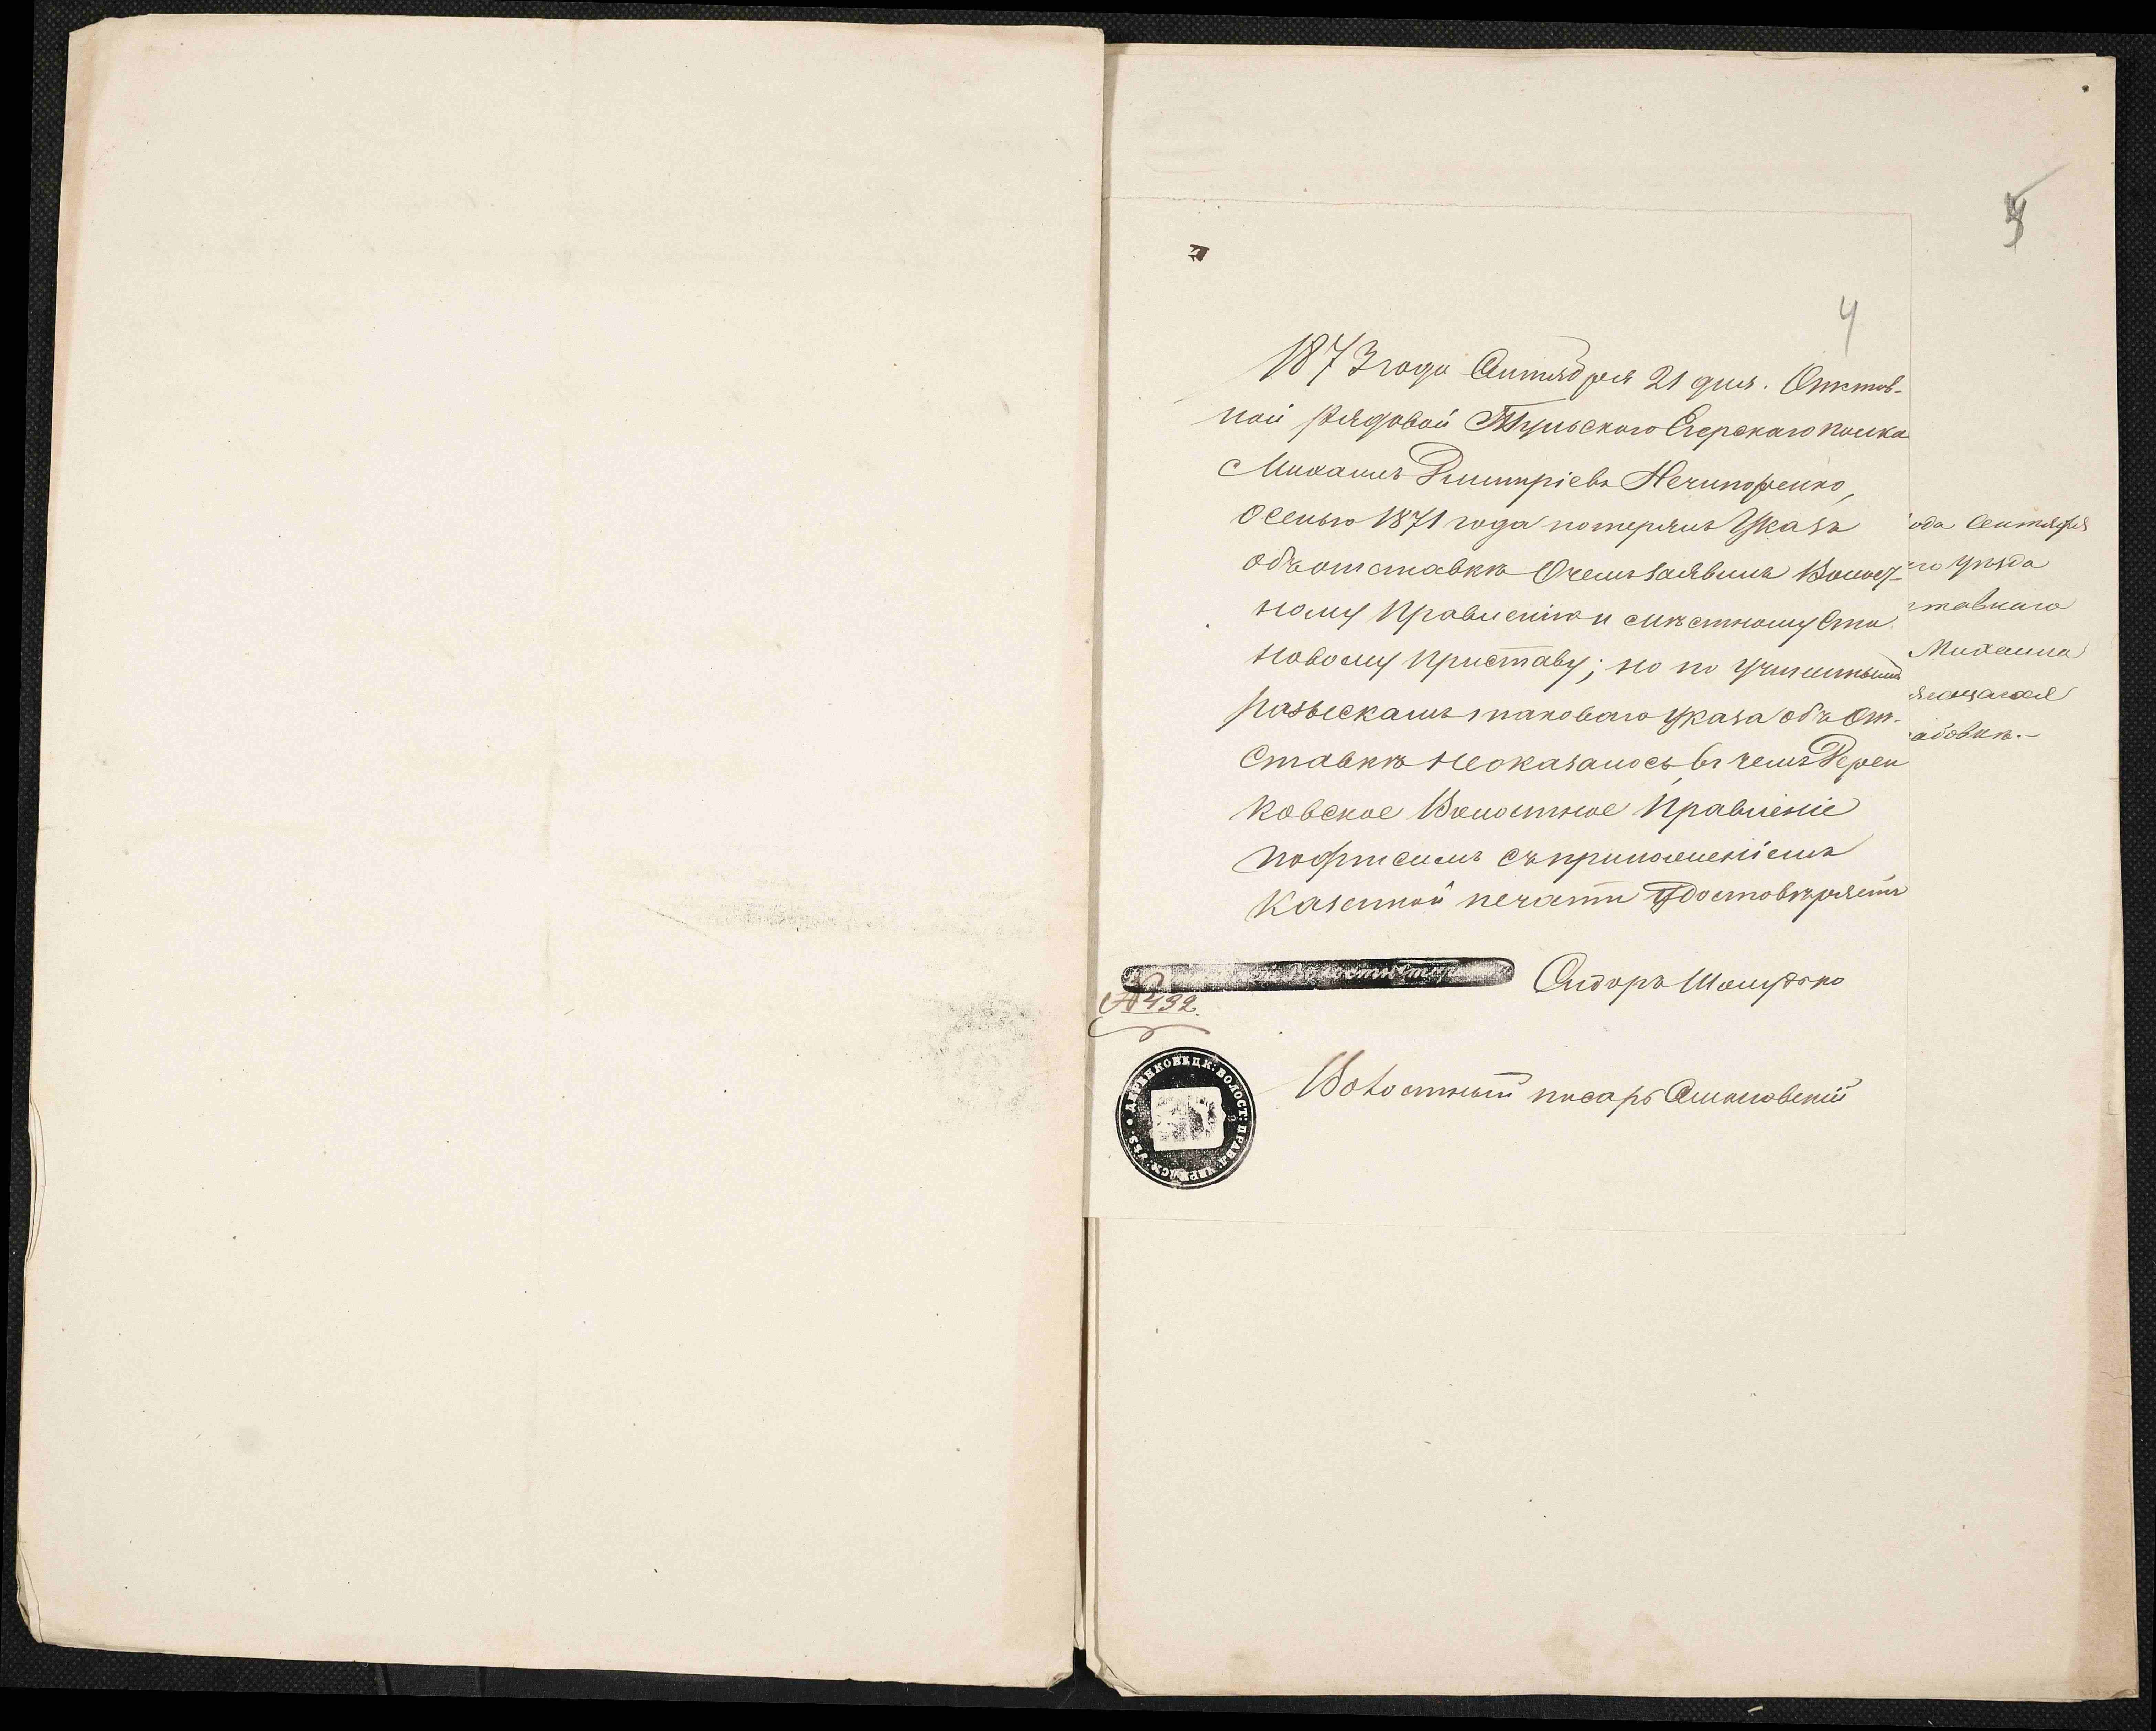 4
1873 года Сентября 21 дня. Отстав-
ной рядовой Тульского Егерскаго полка
Михаилъ Дмитріевъ Нечипоренко,
осенью 1871 года потерялъ Указъ
объ отставкѣ О чемъ заявилъ Волост-
ному Правленію и мѣстному Ста
новому Приставу; но по учиненнымъ
розыскамъ таковаго указа объ От-
ставкѣ неоказалось, въ чемъ Дерен
ковское Волостное Правленіе
подписомъ съ приложеніемъ
казенной печати Удостовѣряетъ
Сидоръ
№ 432.
Волостный писарь
ДЕРЕНКОВЕЦК: ВОЛОСТ: ПРАВЛ. ЧЕРКАСК: УѢЗ.
ода Сентября
го уѣзда
тавнаго
Михаила